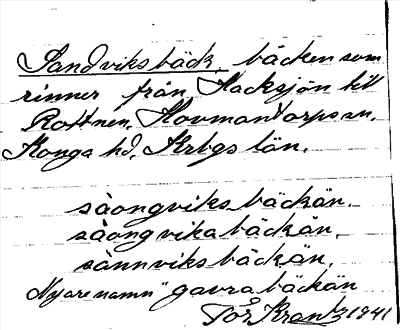 Sandviksbäck, bäcken som
rinner från Hacksjön till
Rottnen. Hovmantorps sn.
Konga hd. Krbgs län.
sàongviksbäckän.
sàongvikabäckän.
sànnviksbäckän.
Nyare namn "gavrabäckän
Tor Krantz 1941